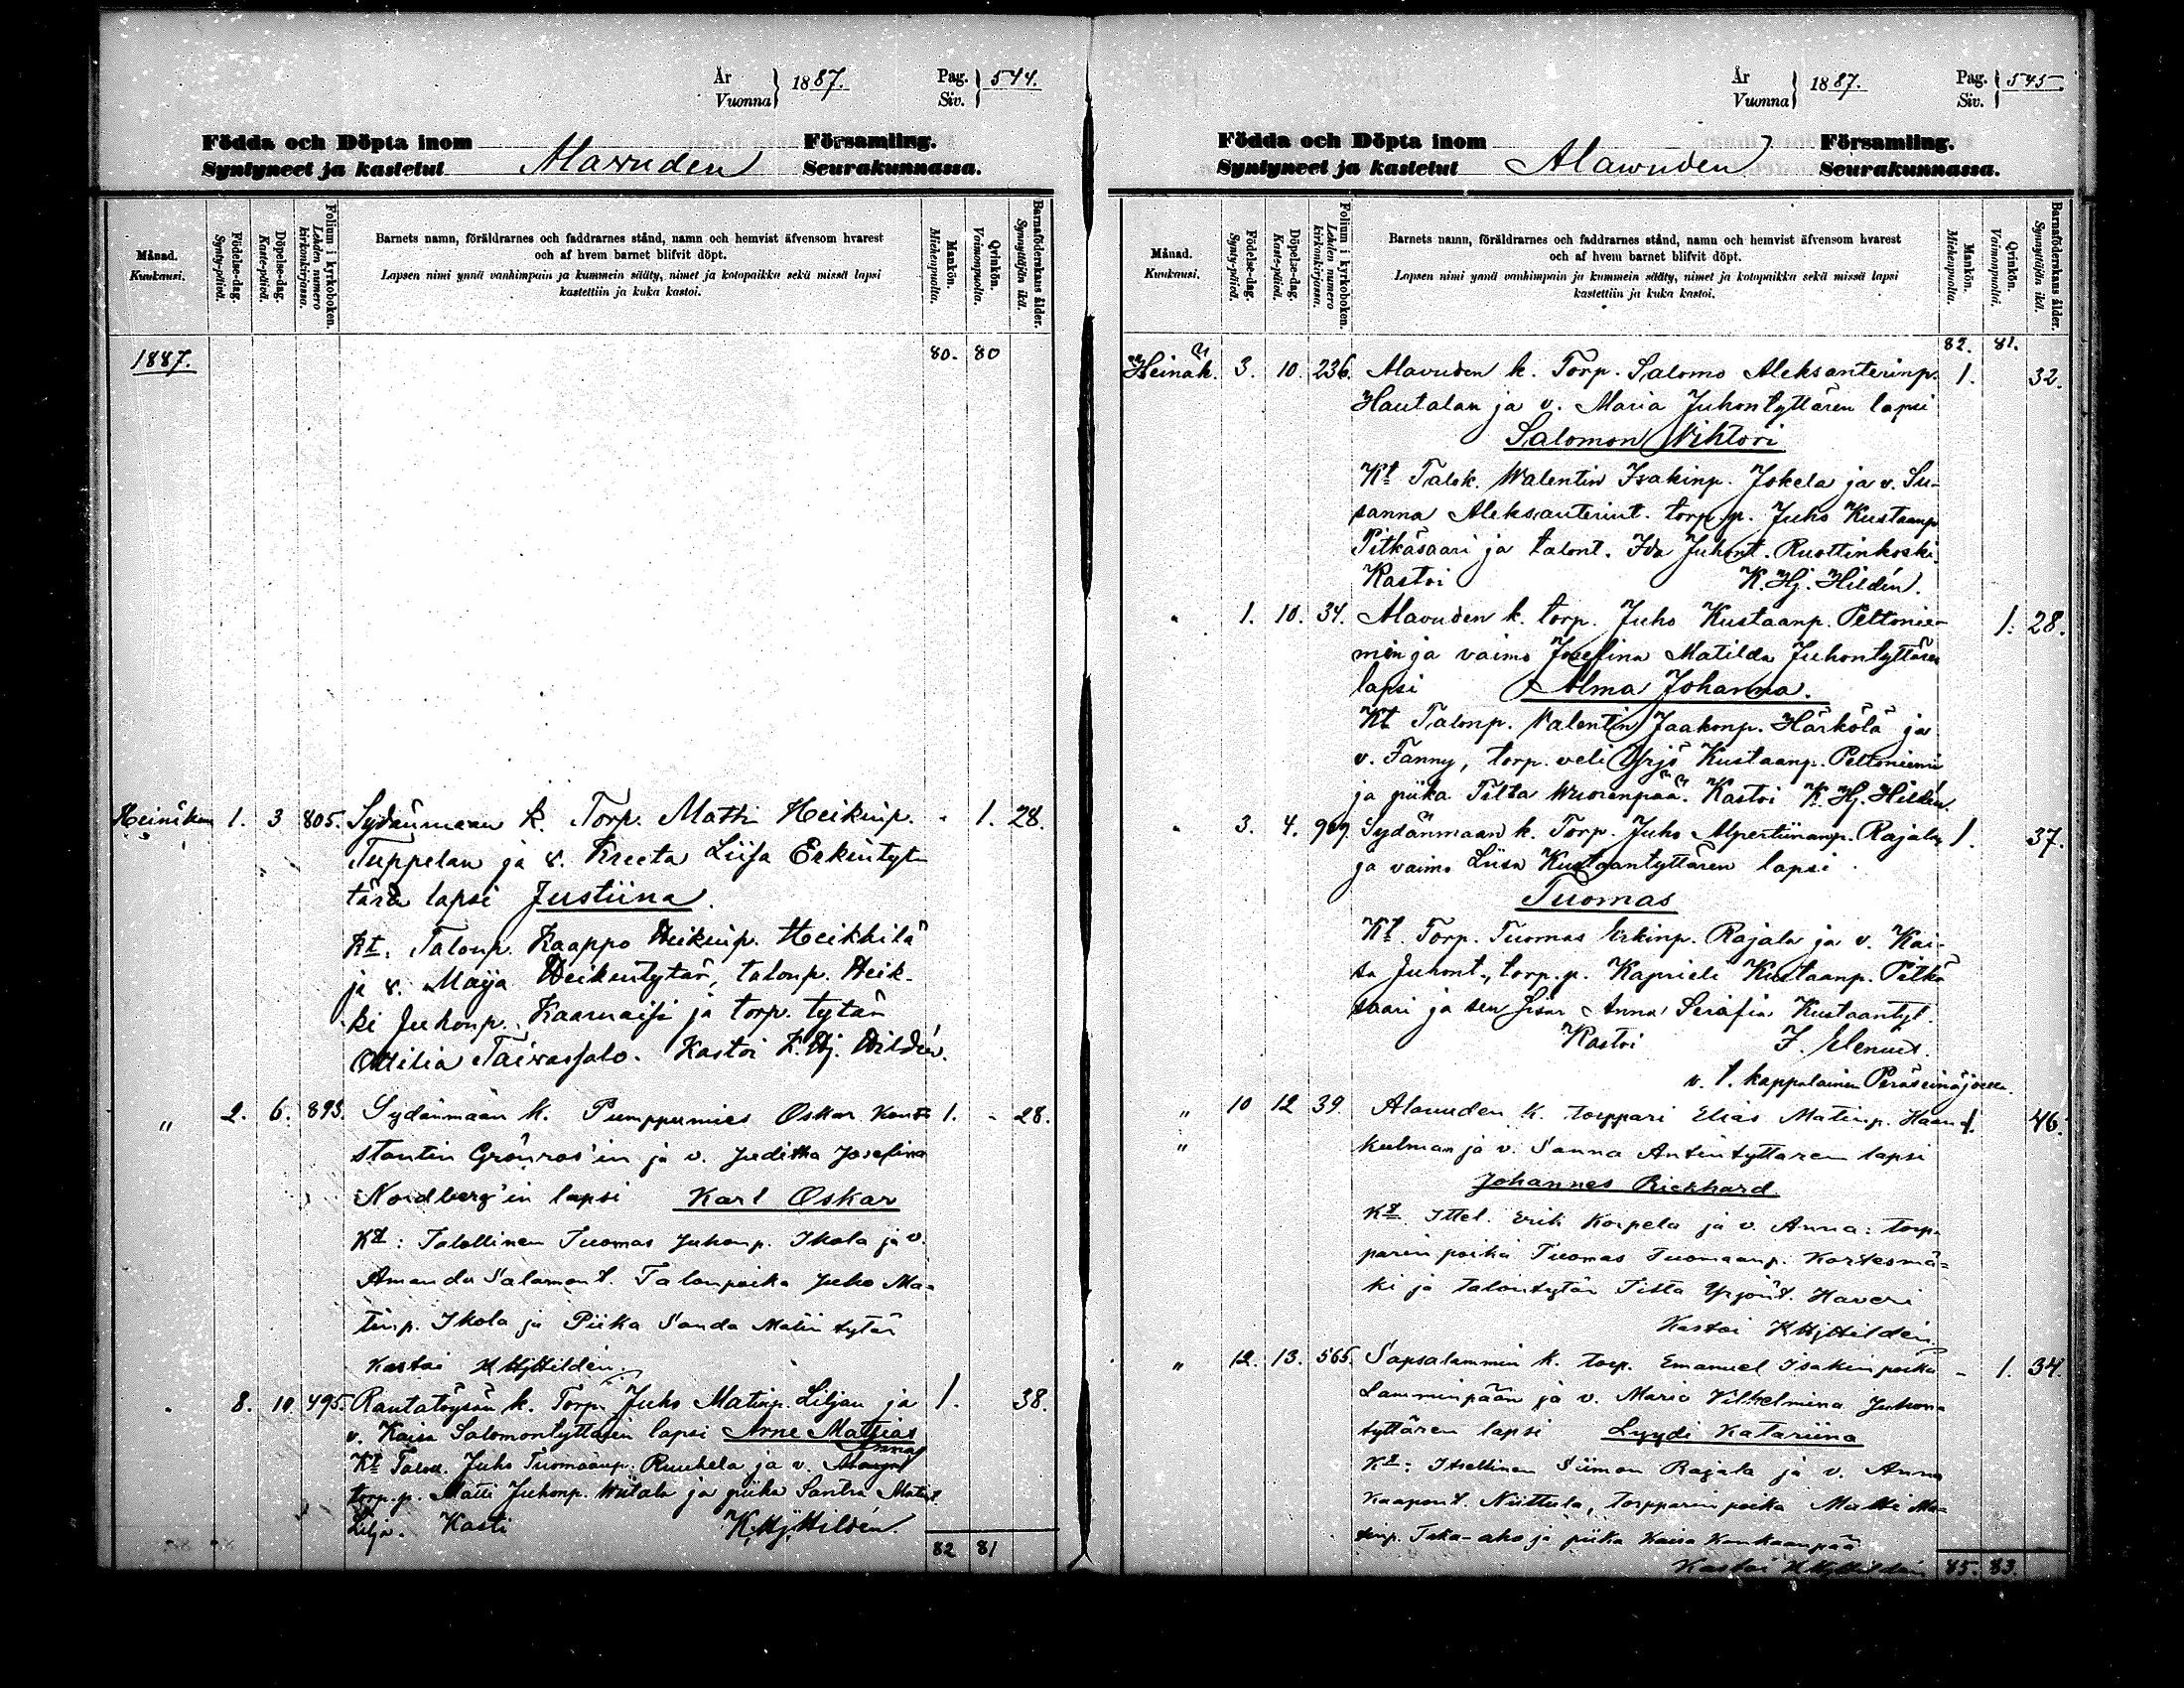 År
Vuonna } 1887.
Pag.
Siv. } 544.
Födda och Döpta inom Församling.
Syntyneet ja kastetut Alavuden Seurakunnassa.
Månad.
Kuukausi.
Födelse-dag.
Synty-päivä.
Döpelse-dag.
Kaste-päivä.
Folium i kyrkoboken.
Lehden numero kirkonkirjassa.
Barnets namn, föräldrarnes och faddrarnes stånd, namn och hemvist äfvensom hvarest
och af hvem barnet blifvit döpt.
Lapsen nimi ynnä vanhimpain ja kummein sääty, nimet ja kotopaikka sekä missä lapsi
kastettiin ja kuka kastoi.
Mankön.
Miehenpuolta.
Qvinkön.
Vaimonpuolta.
Barnaföderskans ålder.
Synnyttäjän ikä.
1887. 80. 80
Heinäkuu 1. 3 805. Sydänmaan k. Torp. Matti Heikinp. - 1. 28.
Tuppelan ja v. Kreeta Liisa Erkintyt-
tären lapsi Justiina.
Kt: Talonp. Kaappo Heikinp. Heikkilä
ja v. Maija Heikintytär, talonp. Heik-
ki Juhonp. Kaarnaisi ja torp. tytär
Ottilia Taivassalo. Kastoi K. Hj. Hildén.
" 2. 6. 893. Sydänmaan k. Pumppumies Oskar Kons- 1. - 28.
stantin Grönros'in ja v. Juditha Josefina
Nordberg'in lapsi Karl Oskar
Kt: Talollinen Tuomas Juhonp. Ikola ja v.
Amanda Salamont. Talonpoika Juho Ma-
tinp. Ikola ja Piika Sanda Matin tytär
Kastoi K Hj Hildén.
" 8. 10. 495. Rantatöysän k. Torp. Juho Matinp. Liljan ja 1. 38.
v. Kaisa Salomontyttären lapsi Arne Mathias
Anna
Kt Talol. Juho Tuomaanp. Ruuhela ja v.
torp.p. Matti Juhonp. Wiitala ja piika Santra Matint.
Lilja. Kasti K. Hj. Hildén.
82 81
År
Vuonna } 1887.
Pag.
Siv. } 545
Födda och Döpta inom Församling.
Syntyneet ja kastetut Alavuden Seurakunnassa.
Månad.
Kuukausi.
Födelse-dag.
Synty-päivä.
Döpelse-dag.
Kaste-päivä.
Folium i kyrkoboken.
Lehden numero kirkonkirjassa.
Barnets namn, föräldrarnes och faddrarnes stånd, namn och hemvist äfvensom hvarest
och af hvem barnet blifvit döpt.
Lapsen nimi ynnä vanhimpain ja kummein sääty, nimet ja kotopaikka sekä missä lapsi
kastettiin ja kuka kastoi.
Mankön.
Miehenpuolta.
Qvinkön.
Vaimonpuolta.
Barnaföderskans ålder.
Synnyttäjän ikä.
82. 81.
Heinäk. 3. 10. 236. Alavuden k. Torp. Salomo Aleksanterinp. 1. 32.
Hautalan ja v. Maria Juhontyttären lapsi
Salomon Wihtori
Kt Talok. Walentin Isakinp. Jokela ja v. Su-
sanna Aleksanterint. torp.p. Juho Kustaanp.
Pitkäsaari ja talont. Ida Juhont. Ruottinkoski.
Kastoi K. Hj. Hildén.
" 1. 10. 34. Alavuden k. torp. Juho Kustaanp. Peltonie- 1. 28.
men ja vaimo Josefina Matilda Juhontyttären
lapsi Alma Johanna.
Kt Talonp. Valentin Jaakonp. Härkölä ja
v. Fanny, torp. veli Yrjö Kustaanp. Peltoniemi
ja piika Tilta Wuorenpää. Kastoi K. Hj. Hildén.
" 3. 4. 909. Sydänmaan k. Torp. Juho Alpertiinanp. Rajalan 1. 37.
ja vaimo Liisa Kustaantyttären lapsi
Tuomas
Kt. Torp. Tuomas Erkinp. Rajala ja v. Kai-
sa Juhont., torp.p. Kaprieli Kustaanp. Pitkä
saari ja sen sisar Anna Serafia Kustaantyt.
Kastoi
v. t. kappalainen Peräseinäjoella.
" 10 12 39. Alavuden k. torppari Elias Matinp. Haan 1. 46.
" kulman ja v. Sanna Antintyttären lapsi
Johannes Rickhard.
Kt. Ittel. Erik Korpela ja v. Anna: torp-
parin poika Tuomas Tuomaanp. Kortesmä-
ki ja talontytär Tilta Yrjönt. Haveri
Kastoi K Hj Hildén.
" 12. 13. 565. Sapsalammin k. torp. Emanuel Isakin poika - 1. 34.
Lamminpään ja v. Maria Vilhelmina Juhon-
tyttären lapsi Lyydi Katariina
Kt: Itsellinen Siimon Rajala ja v. Anna
Kaapont. Niittula, torpparin poika Matti Ma-
tinp. Teka-aho ja piika Kaisa Kankaanpää
Kastoi K Hj Hildén 85. 83.